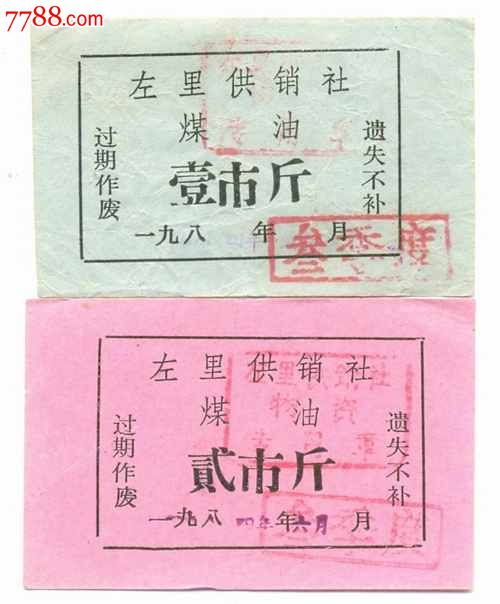 7788.com
左里供销社
煤油
壹市斤
一九八 年 月
过期作废
遗失不补
叁季度
左里供销社
煤油
贰市斤
一九八四年 年六月 月
过期作废
遗失不补
物资